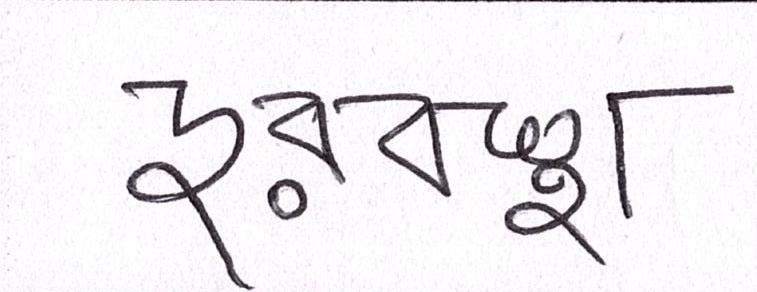 দুরবস্থা